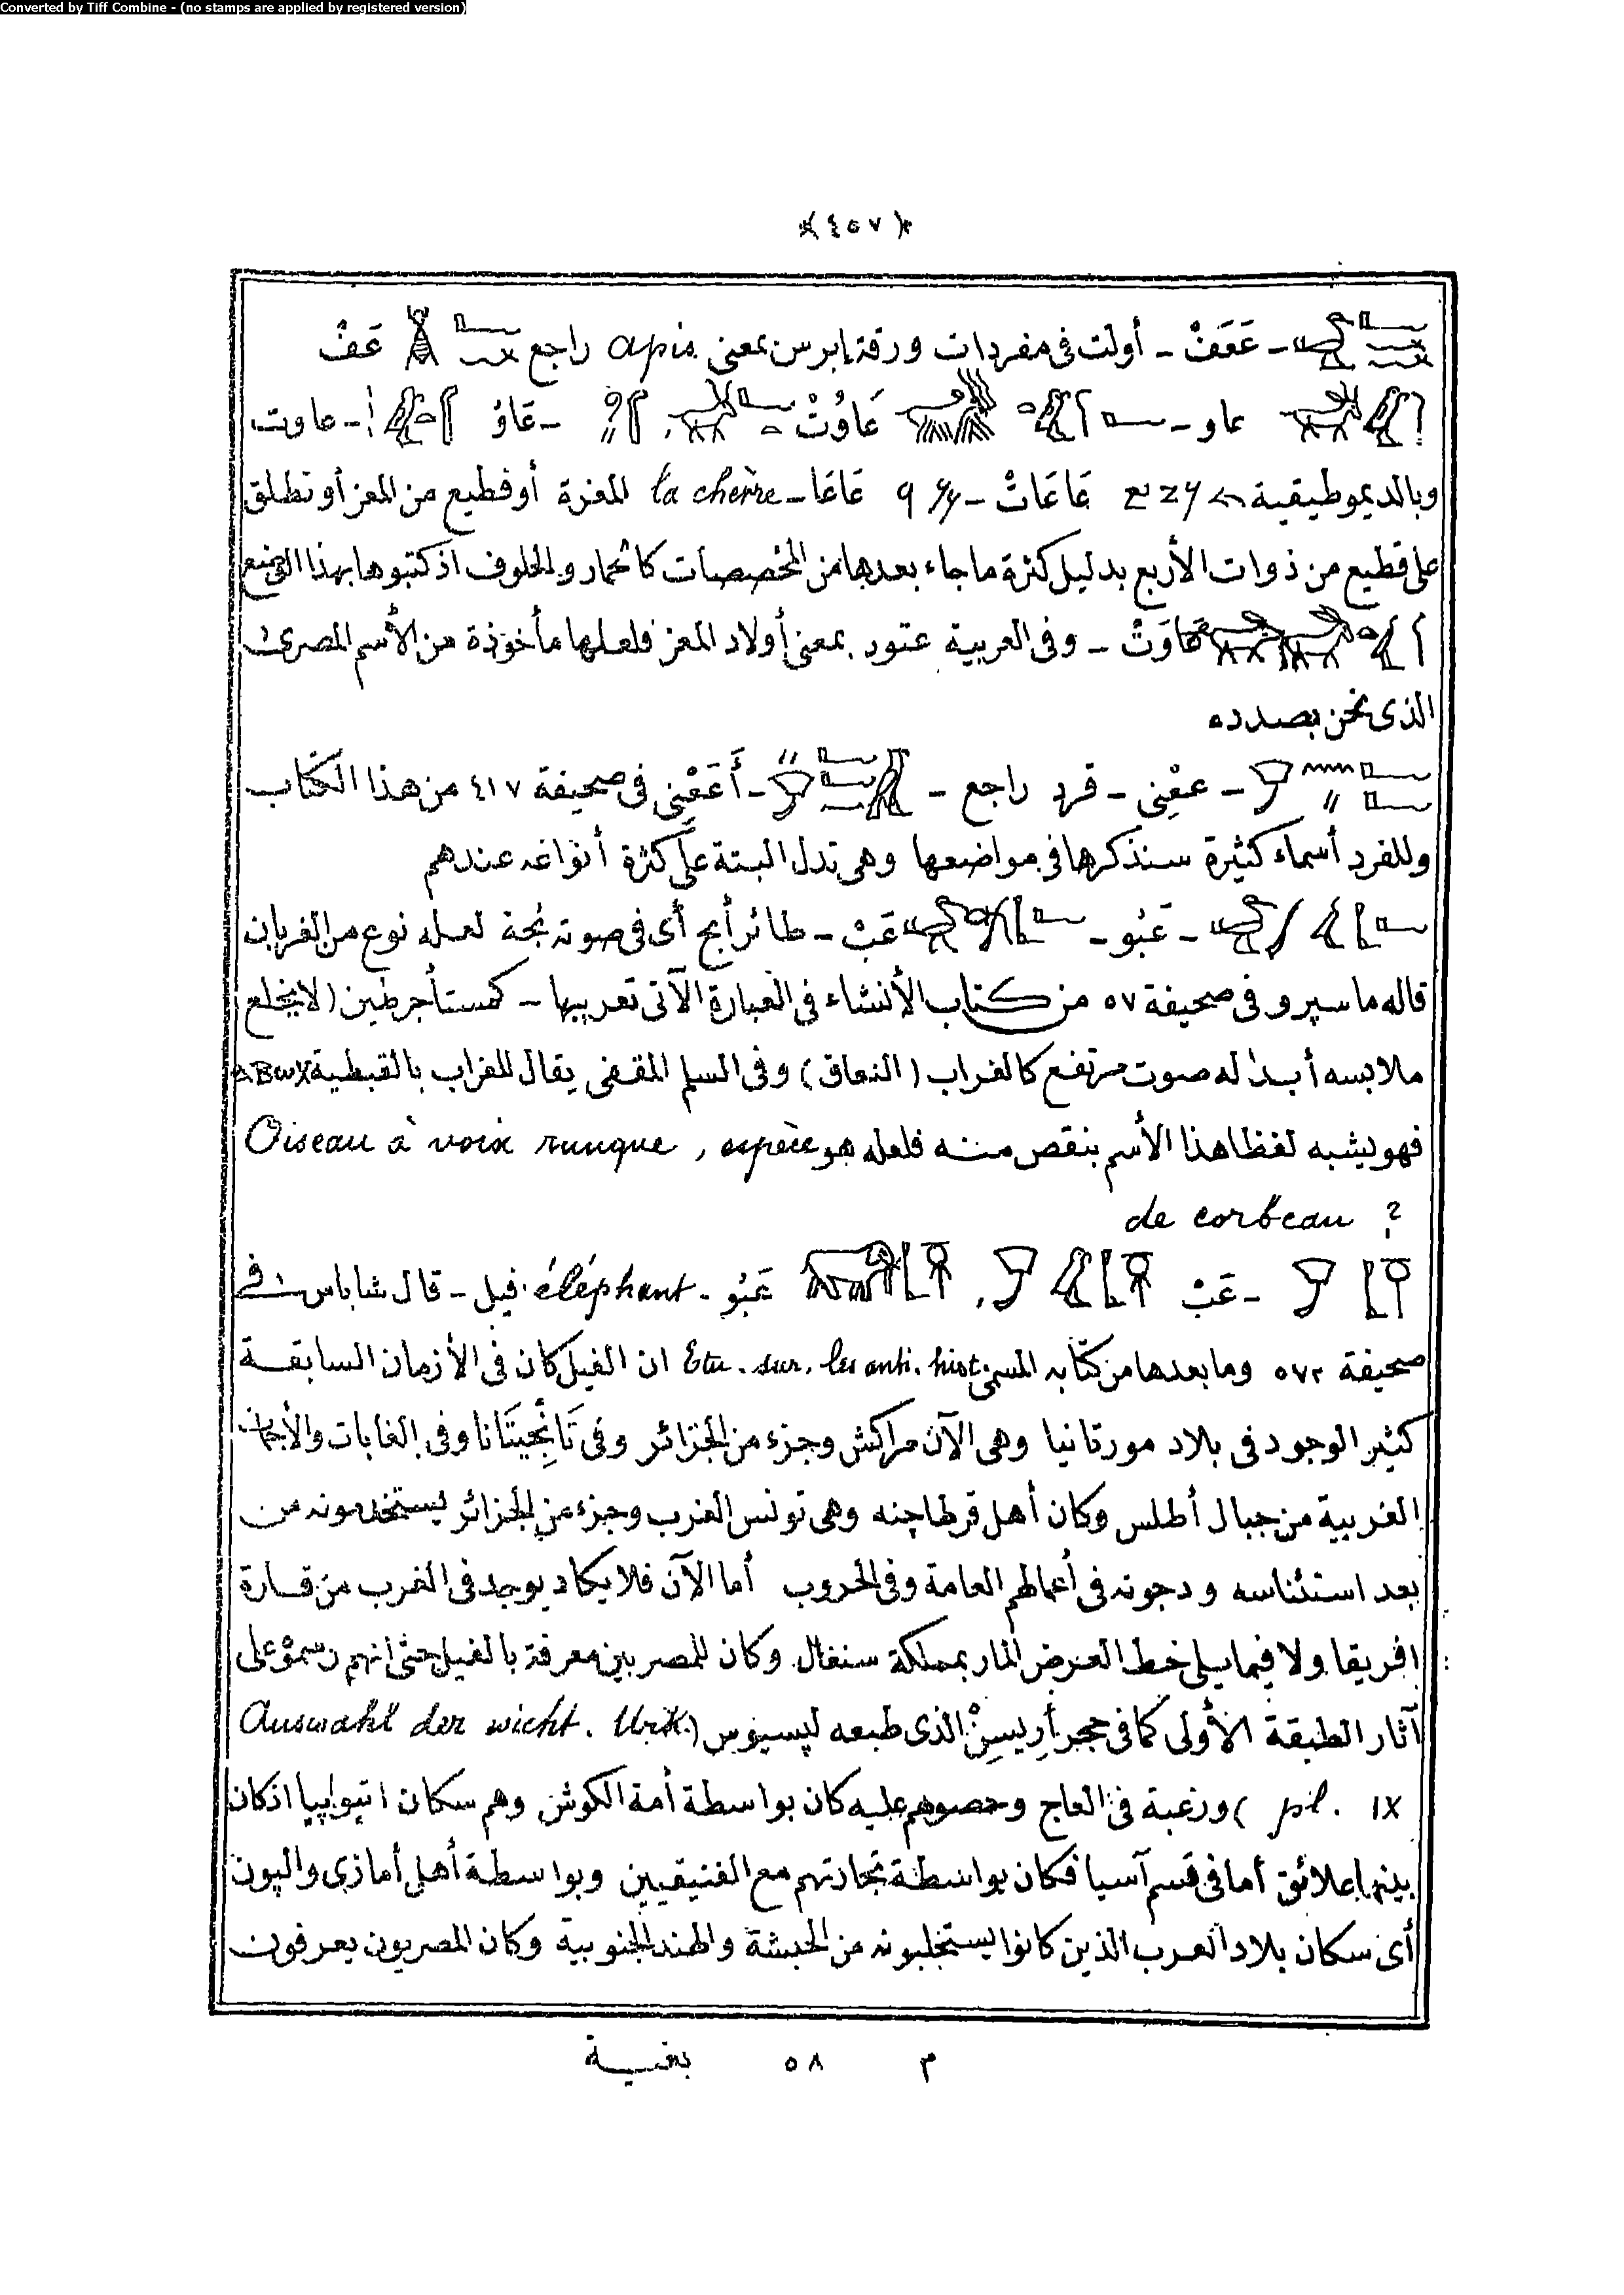 Converted by Tiff Combine - (no stamps are applied by registered version)
﴿٤٥٧﴾
- عَعَفْ - أولت فى مفردات ورقة ابرس بمعنى apis راجع عَفْ
عاو - عَاوُتْ - عَاوُ - عاوت
وبالديموطيقية عَاعَاتْ - عَاعَا - la chèvre المعزة أو قطيع من المعز أو تطلق
على قطيع من ذوات الأربع بدليل كثرة ما جاء بعدها من المخصصات كالحمار والخلوف اذ كتبوها بهذا الوضع
عَاوَتْ - وفى العربية عتود بمعنى أولاد المعز فلعلها مأخوذة من الأسم المصرى
الذى نحن بصدده
- عنْعِنى - قرد راجع - - أَعَعْنِى فى صحيفة ٤١٧ من هذا الكتاب
وللقرد أسماء كثيرة سنذكرها فى مواضعها وهى تدل البتة على كثرة أنواعه عندهم
- عَبُو - عَبْ - طائر أبح أى فى صوته بُحة لعله نوع من الغربان
قاله ماسپرو فى صحيفة ٥٧ من كتاب الأنشاء فى العبارة الآتى تعريبها - كمستأجر طين (لا يخلع
ملابسه أبدا له صوت مرتفع كالغراب (النعاق) وفى السلم المقفى يقال للغراب بالقبطية ⲁⲃⲱⲕ
فهو يشبه لفظا هذا الأسم بنقص منه فلعله هو Oiseau à voix rauque, espèce
de corbeau ?
- عَبْ عَبُو - éléphant فيل - قال شاباس فى
صحيفة ٥٧٢ وما بعدها من كتابه المسمى Etu. sur. les anti. hist ان الفيل كان فى الأزمان السابقة
كثير الوجود فى بلاد مورتانيا وهى الآن مراكش وجزء من الجزائر وفى تَانْجِيتَانا وفى الغابات والأجمات
الغربية من جبال أطلس وكان أهل قرطاجنه وهى تونس الغرب وجزء من الجزائر يستخدمونه من
بعد استئناسه ودجونه فى أعمالهم العامة وفى الحروب أما الآن فلا يكاد يوجد فى الغرب من قارة
افريقا ولا فيما يلى خط العرض المار بمملكة سنغال وكان للمصريين معرفة بالفيل حتى انهم رسموه على
آثار الطبقة الأولى كما فى حجر الذى طبعه ليسيوس (Auswahl der wicht. Urk.
pl. IX) ورغبة فى العاج وحصولهم عليه كان بواسطة أمة الكوش وهم سكان اتيوابيا اذ كان
بينهما علائق أما فى قسم آسيا فكان بواسطة تجارتهم مع الفنيقيين وبواسطة أهل أمازى والپون
أى سكان بلاد العرب الذين كانوا يستجلبونه من الحبشة والهند الجنوبية وكان المصريون يعرفون
م ٥٨ بغية